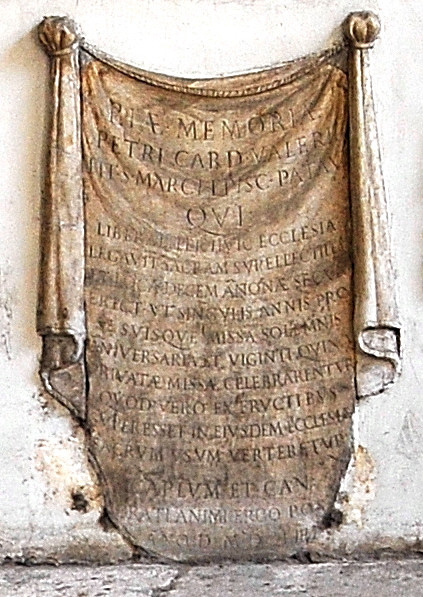 PIÆ MEMORIÆ
PETRI CARD. VALERI
TIT. S. MARCI EPISC. PATAV
QVI
LIBERALITER HVIC ECCLESIÆ
LEGAVIT SACRAM SVPELLECTILEM
DECEM ANONÆ
ERECT VT SINGVLIS ANNIS PRO
SE SVISQVE MISSA SOLEMNIS
ANNIVERSARIA ET VIGINTI QVINQ
PRIVATÆ MISSÆ CELEBRARENTVR
QVOD VERO EX FRVCTIBVS
SVPERESSET IN EJVSDEM ECCLESIÆ
VSVM VERTERETVR
CAPLVM ET CAN
GRATI ANIMI ERGO POS